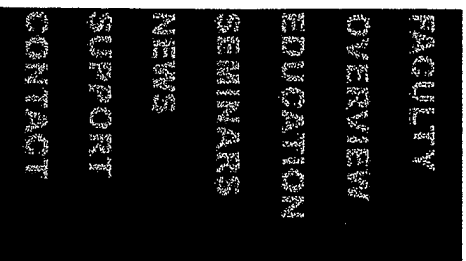 FACULTY
OVERVIEW
EDUCATION
SEMINARS
NEWS
SUPPORT
CONTACT